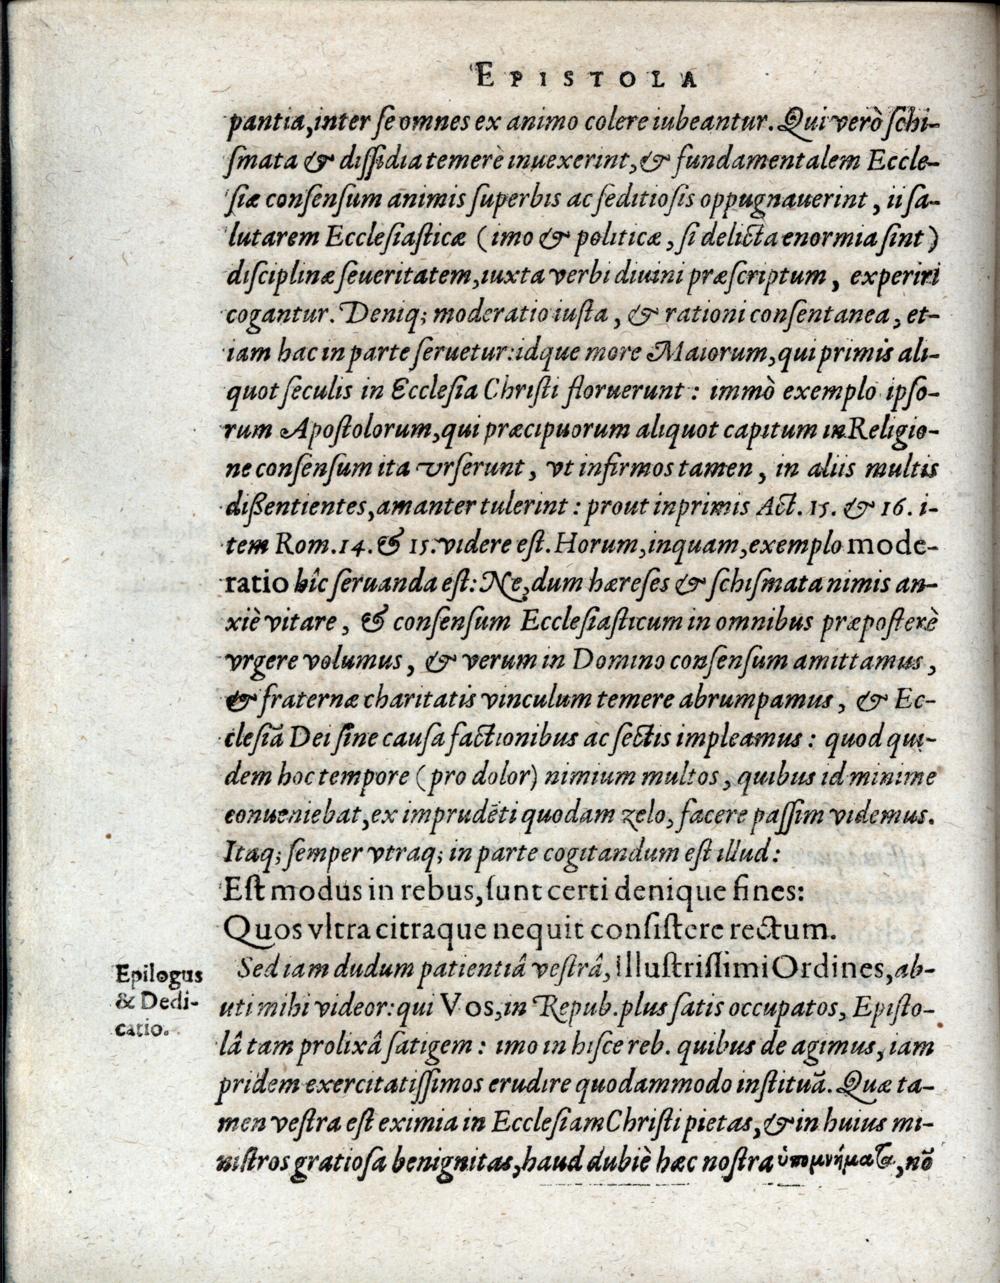 EPISTOLA
pantia, inter se omnes ex animo colere iubeantur. Qui verò schi-
smata & dissidia temerè inuexerint, & fundamentalem Eccle-
siæ consensum animis superbis ac seditiosis oppugnauerint, ii sa-
lutarem Ecclesiasticæ (imo & politicæ, si delicta enormia sint)
disciplinæ seueritatem, iuxta verbi diuini præscriptum, experiri
cogantur. Deniq; moderatio iusta, & rationi consentanea, et-
iam hac in parte seruetur: idque more Maiorum, qui primis ali-
quot seculis in Ecclesia Christi floruerunt: immò exemplo ipso-
rum Apostolorum, qui præcipuorum aliquot capitum in Religio-
ne consensum ita vrserunt, vt infirmos tamen, in aliis multis
dißentientes, amanter tulerint: prout inprimis Act. 15. & 16. i-
tem Rom. 14. & 15. videre est. Horum, inquam, exemplo mode-
ratio hîc seruanda est: Ne, dum hæreses & schismata nimis an-
xiè vitare, & consensum Ecclesiasticum in omnibus præposterè
vrgere volumus, & verum in Domino consensum amittamus,
& fraternæ charitatis vinculum temere abrumpamus, & Ec-
clesiā Dei sine causa factionibus ac sectis impleamus: quod qui-
dem hoc tempore (pro dolor) nimium multos, quibus id minime
conueniebat, ex imprudēti quodam zelo, facere passim videmus.
Itaq; semper vtraq; in parte cogitandum est illud:
Est modus in rebus, sunt certi denique fines:
Quos vltra citraque nequit consistere rectum.
Sed iam dudum patientiâ vestrâ, Illustrissimi Ordines, ab-
uti mihi videor: qui Vos, in Repub. plus satis occupatos, Episto-
lâ tam prolixâ satigem: imo in hisce reb. quibus de agimus, iam
pridem exercitatissimos erudire quodammodo instituā. Quæ ta-
men vestra est eximia in Ecclesiam Christi pietas, & in huius mi-
nistros gratiosa benignitas, haud dubiè hæc nostra ὑπομνήματα, nō
Epilogus
& Dedi-
catio.